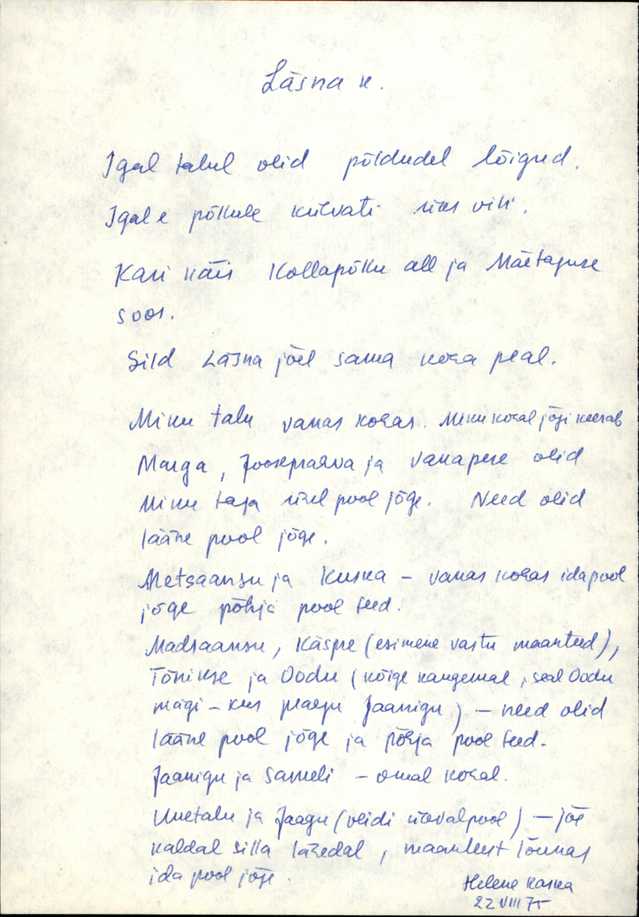 Läsna k.
Igal talul olid põldudel lõigud.
Igale põllule külvati üks vili.
Kari käis Kollapõllu all ja Mäetaguse
soos.
Sild Läsna jõel sama koha peal.
Minu talu vanas kohas. Minu kohal jõgi keerab
Marga, Jooseprahva ja Vanapere olid
Minu taga ühel pool jõge. Need olid
lääne pool jõge.
Metsaansu ja Kuska – vanas kohas idapool
jõge põhja pool teed.
Madsaansu, Käspre (esimene vastu maanteed),
Tõnikse ja Oodu (kõige kaugemal, seal Oodu
mägi – kus praegu Jaanigu) – need olid
lääne pool jõge ja põhja pool teed.
Jaanigu ja Sameli – omal kohal.
Uuetalu ja Jaagu (veidi ülevalpool) – jõe
kaldal silla lähedal, maanteest lõunas
ida pool jõge.
Helene
22 VIII 75